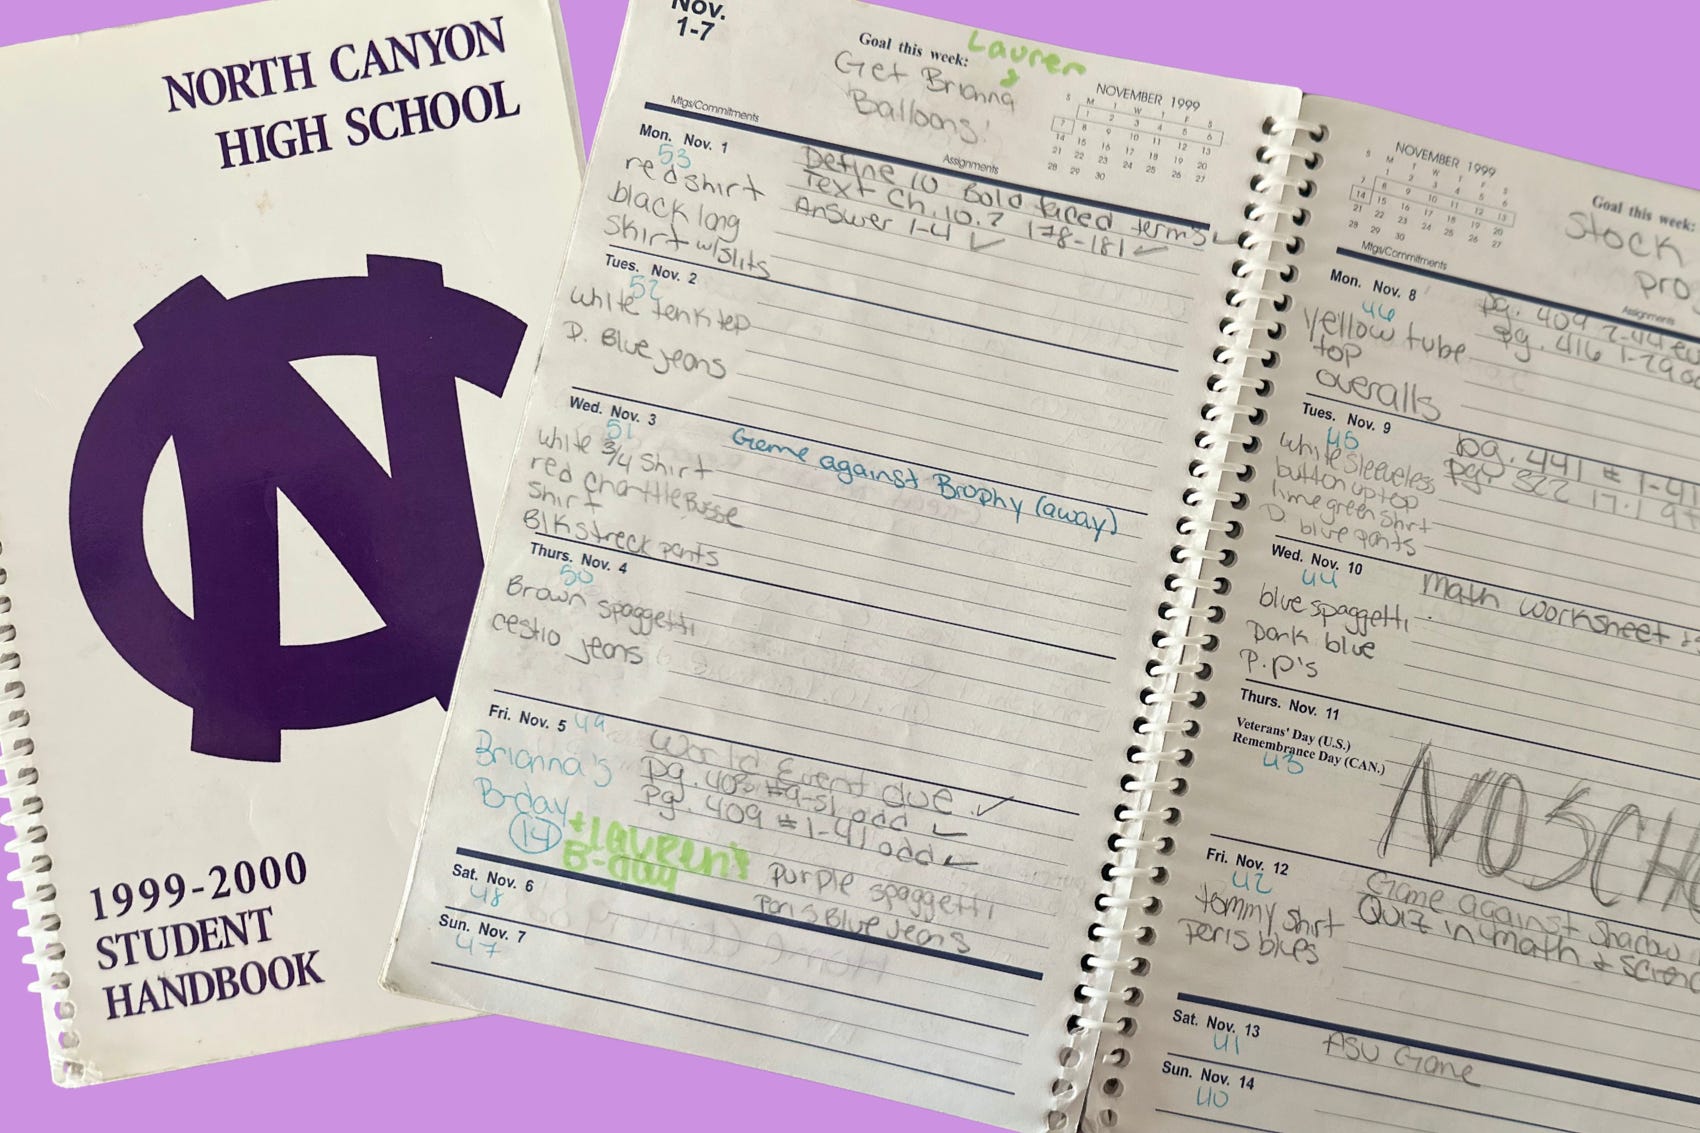 NORTH CANYON
HIGH SCHOOL
NC
1999-2000
STUDENT
HANDBOOK
Nov.
1-7
Goal this week:
Lauren
&
Get Brianna
Balloons!
NOVEMBER 1999
S M T W T F S
1 2 3 4 5 6
7 8 9 10 11 12 13
14 15 16 17 18 19 20
21 22 23 24 25 26 27
28 29 30
Mtgs/Commitments
Assignments
Mon. Nov. 1
53
red shirt
black long
skirt w/slits
Define 10 Bold faced terms ✓
Text Ch. 10.2 178-181 ✓
Answer 1-4 ✓
Tues. Nov. 2
52
white tenk tep
D. Blue jeans
Wed. Nov. 3
51
white 3/4 shirt
red charttleBusse
shirt
Blk streck pants
Game against Brophy (away)
Thurs. Nov. 4
50
Brown spaggetti
cestio jeans
Fri. Nov. 5
49
Brianna's
B-day
14
+ Lauren's
B-day
World Event due ✓
pg. 403 #9-51 odd ✓
pg. 409 #1-41 odd ✓
purple spaggetti
paris Blue jeans
Sat. Nov. 6
48
Sun. Nov. 7
47
NOVEMBER 1999
S M T W T F S
1 2 3 4 5 6
7 8 9 10 11 12 13
14 15 16 17 18 19 20
21 22 23 24 25 26 27
28 29 30
Goal this week:
Stock
pro
Mtgs/Commitments
Assignments
Mon. Nov. 8
46
yellow tube
top
overalls
pg. 409 2-44 ev
pg. 416 1-29 od
Tues. Nov. 9
45
white sleeveless
button up top
lime green shirt
D. blue pants
pg. 441 # 1-41
pg. 522 17.1
Wed. Nov. 10
44
blue spaggetti
Dark blue
P.P's
Math worksheet
Thurs. Nov. 11
Veterans' Day (U.S.)
Remembrance Day (CAN.)
43
NO SCH
Fri. Nov. 12
42
tommy shirt
peris blues
Game against Shadow
Quiz in math + scienc
Sat. Nov. 13
41
ASU Game
Sun. Nov. 14
40